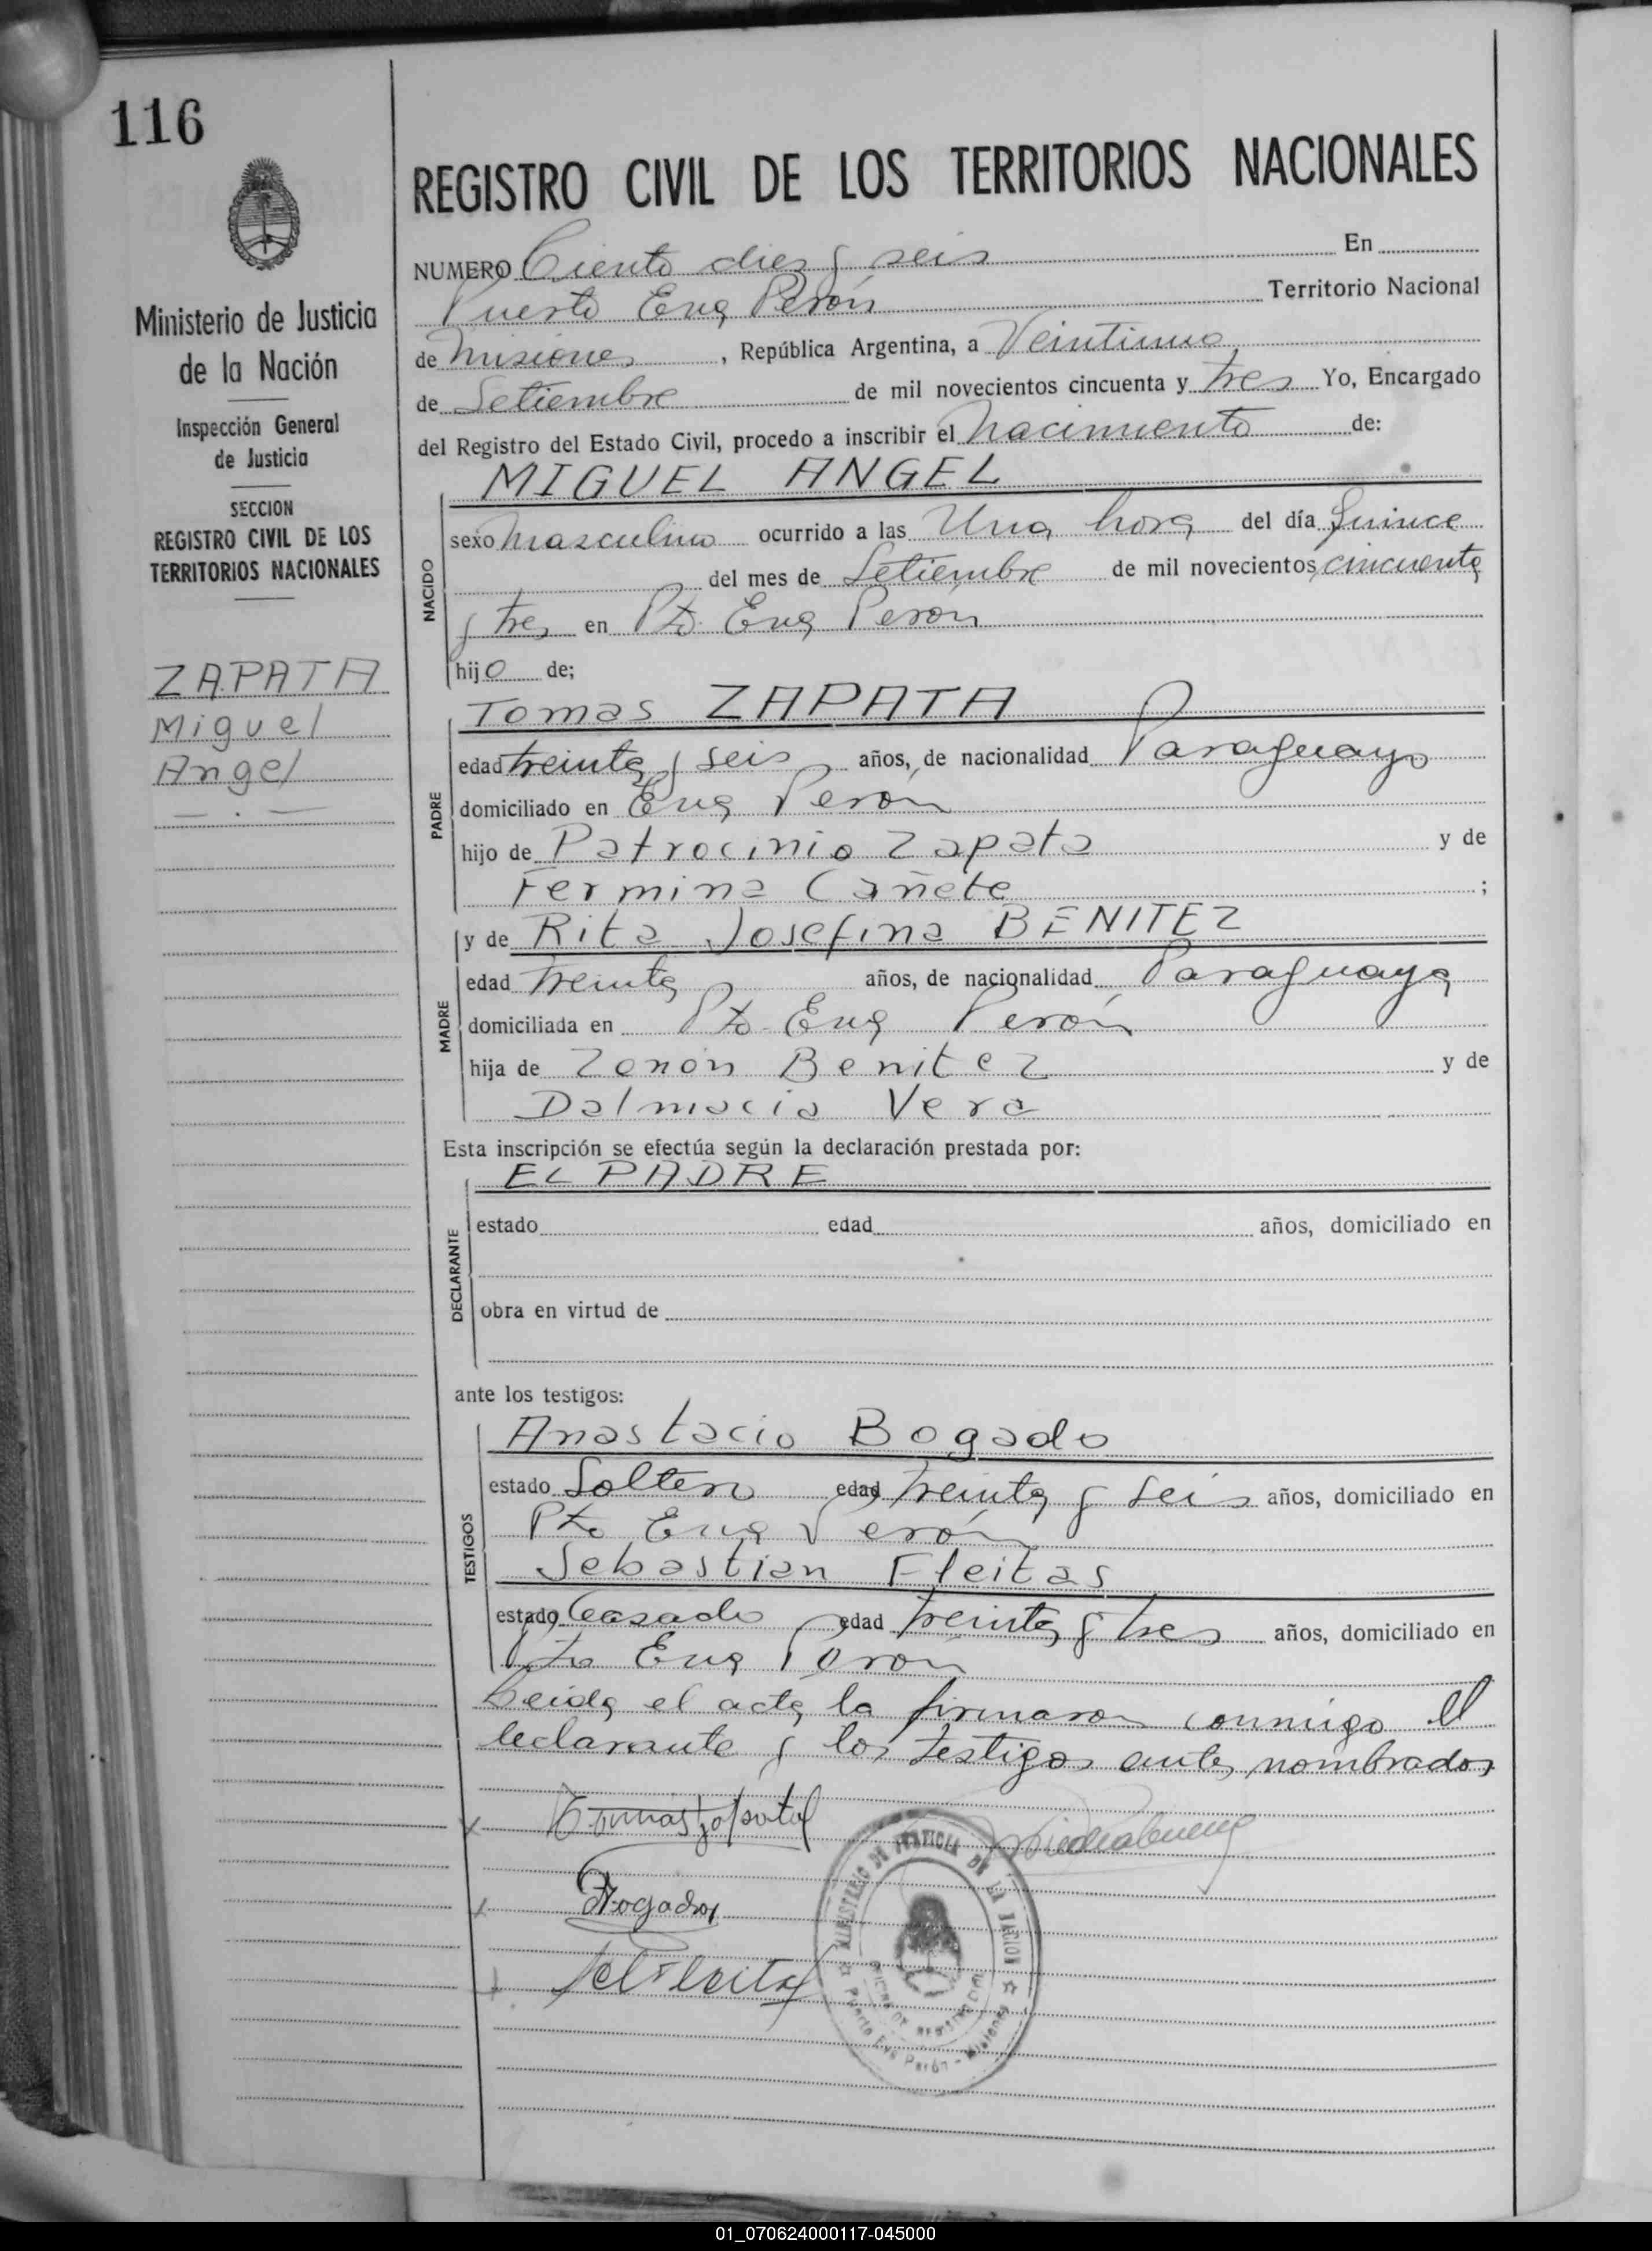 116
REGISTRO CIVIL DE LOS TERRITORIOS NACIONALES
Ministerio de Justicia
de la Nación
Inspección General
de Justicia
SECCION
REGISTRO CIVIL DE LOS
TERRITORIOS NACIONALES
ZAPATA
Miguel
Angel
NUMERO Ciento diez y seis En
Puerto Eva Perón Territorio Nacional
de Misiones, República Argentina, a Veintiuno
de Setiembre de mil novecientos cincuenta y tres Yo, Encargado
del Registro del Estado Civil, procedo a inscribir el Nacimiento de:
NACIDO
MIGUEL ANGEL
sexo masculino ocurrido a las Una hora del día quince
del mes de Setiembre de mil novecientos cincuenta
y tres en Pto. Eva Perón
hijo de;
PADRE
Tomas ZAPATA
edad treinta y seis años, de nacionalidad Paraguayo
domiciliado en Eva Perón
hijo de Patrocinio Zapata y de
Fermina Cañete ;
MADRE
y de Rita Josefina BENITEZ
edad treinta años, de nacionalidad Paraguaya
domiciliada en Pto. Eva Perón
hija de Zenón Benitez y de
Dalmacia Vera
Esta inscripción se efectúa según la declaración prestada por:
DECLARANTE
EL PADRE
estado edad años, domiciliado en
obra en virtud de
ante los testigos:
TESTIGOS
Anastacio Bogado
estado Soltero edad treinta y seis años, domiciliado en
Pto Eva Perón
Sebastian Fleitas
estado Casado edad treinta y tres años, domiciliado en
Pto Eva Perón
Leida el acta, la firmaron conmigo el
declarante y los testigos antes nombrados
Tomás Zapata
Bogado
MINISTERIO DE JUSTICIA DE LA NACION
Puerto Eva Perón - Misiones
01_070624000117-045000